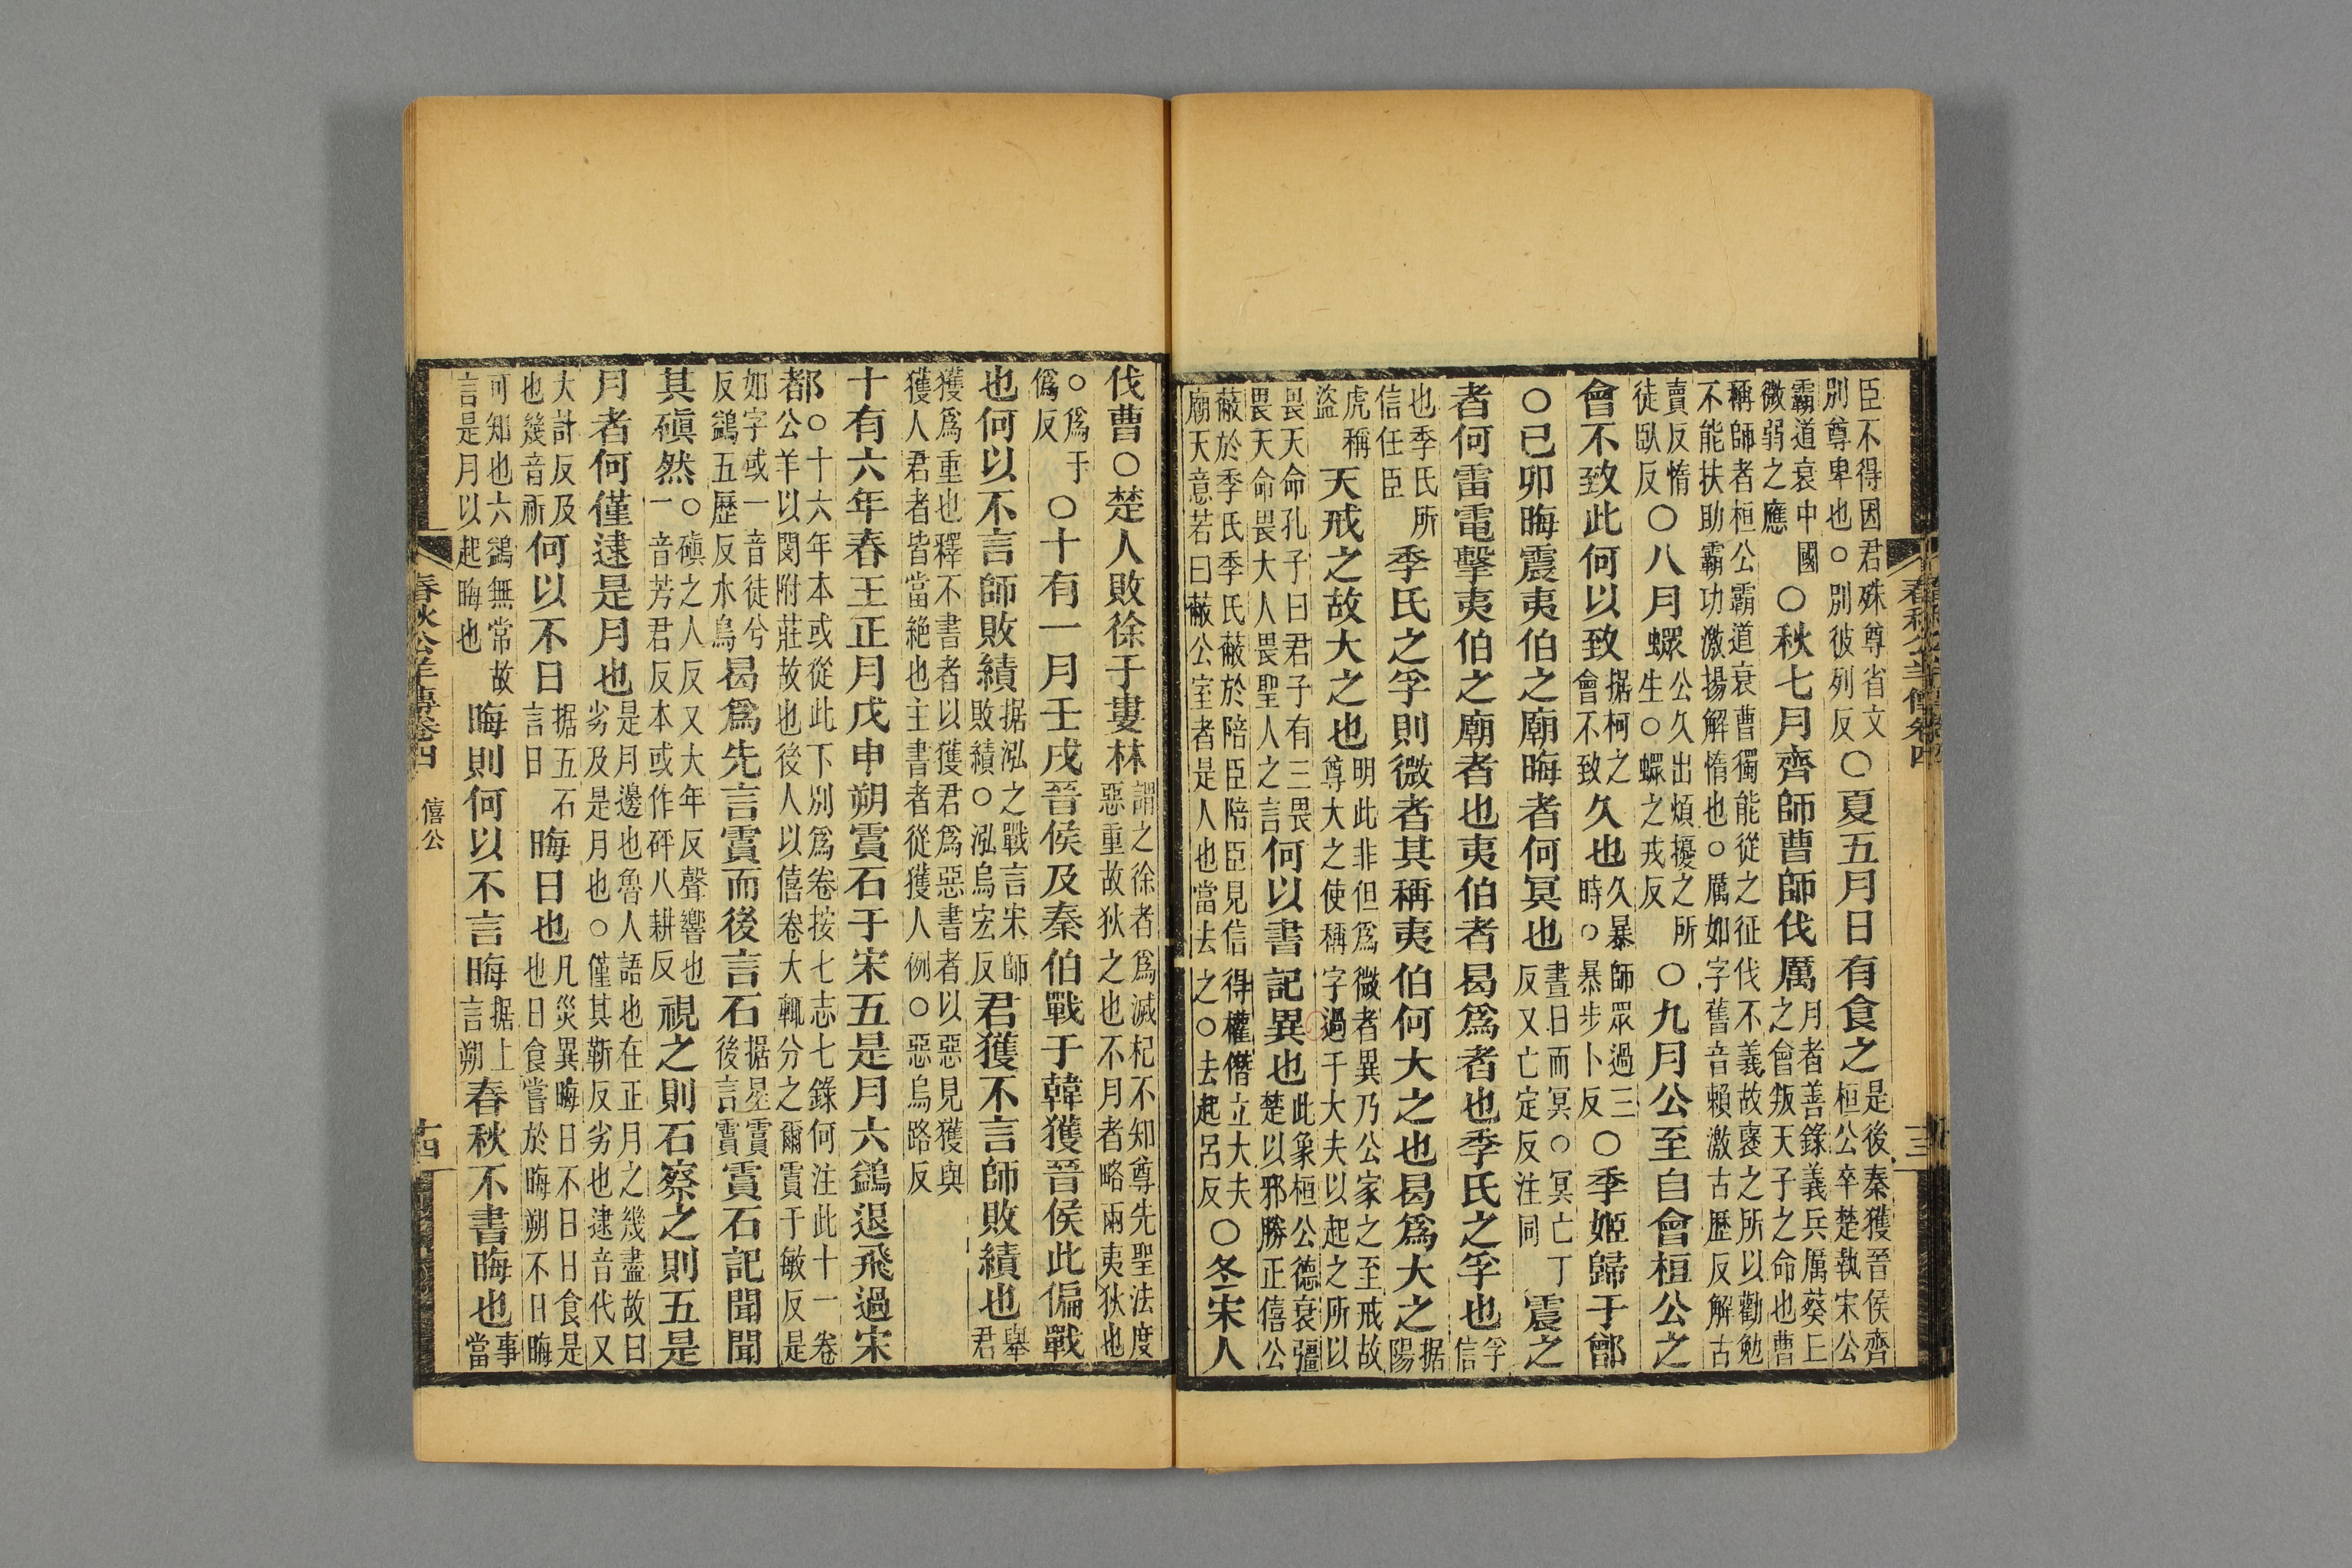 春秋公羊傳卷四
十三
臣不得因君殊尊省文別尊卑也○別彼列反○夏五月日有食之是後秦獲晉侯齊桓公卒楚執宋公
霸道衰中國微弱之應○秋七月齊師曹師伐厲月者善錄義兵厲葵丘之會叛天子之命也曹
稱師者桓公霸道衰曹獨能從之征伐不義故襃之所以勸勉不能扶助霸功激揚解惰也○厲如字舊音賴激古歷反解古
賣反惰徒臥反○八月䗥公久出煩擾之所生○䗥之戎反○九月公至自會桓公之
會不致此何以致据柯之會不致久也久暴師眾過三時○暴步卜反○季姬歸于鄫
○己卯晦震夷伯之廟晦者何冥也晝日而冥○冥亡丁反又亡定反注同震之
者何雷電擊夷伯之廟者也夷伯者曷爲者也季氏之孚也孚信
也季氏所信任臣季氏之孚則微者其稱夷伯何大之也曷爲大之据陽
虎稱盜天戒之故大之也明此非但爲微者異乃公家之至戒故尊大之使稱字過于大夫以起之所以
畏天命孔子曰君子有三畏畏天命畏大人畏聖人之言何以書記異也此象桓公德衰彊楚以邪勝正僖公
蔽於季氏季氏蔽於陪臣陪臣見信得權僭立大夫廟天意若曰蔽公室者是人也當去之○去起呂反○冬宋人
伐曹○楚人敗徐于婁林謂之徐者爲滅杞不知尊先聖法度惡重故狄之也不月者略兩夷狄也
○爲于僞反○十有一月壬戌晉侯及秦伯戰于韓獲晉侯此偏戰
也何以不言師敗績据泓之戰言宋師敗績○泓烏宏反君獲不言師敗績也舉君
獲爲重也釋不書者以獲君爲惡書者以惡見獲與獲人君者皆當絕也主書者從獲人例○惡烏路反
十有六年春王正月戊申朔霣石于宋五是月六鷁退飛過宋
都○十六年本或從此下別爲卷按七志七錄何注此十一卷公羊以閔附莊故也後人以僖卷大輒分之爾霣于敏反是
如字或一音徒兮反鷁五歷反水鳥曷爲先言霣而後言石据星霣後言霣霣石記聞聞
其磌然○磌之人反又大年反聲響也一音芳君反本或作砰八耕反視之則石察之則五是
月者何僅逮是月也是月邊也魯人語也在正月之幾盡故曰劣及是月也○僅其靳反劣也逮音代又
大計反及也幾音祈何以不日据五石言日晦日也凡災異晦日不日日食是也日食嘗於晦朔不日晦
可知也六鷁無常故言是月以起晦也晦則何以不言晦据上言朔春秋不書晦也事當
春秋公羊傳卷四
僖公
十四